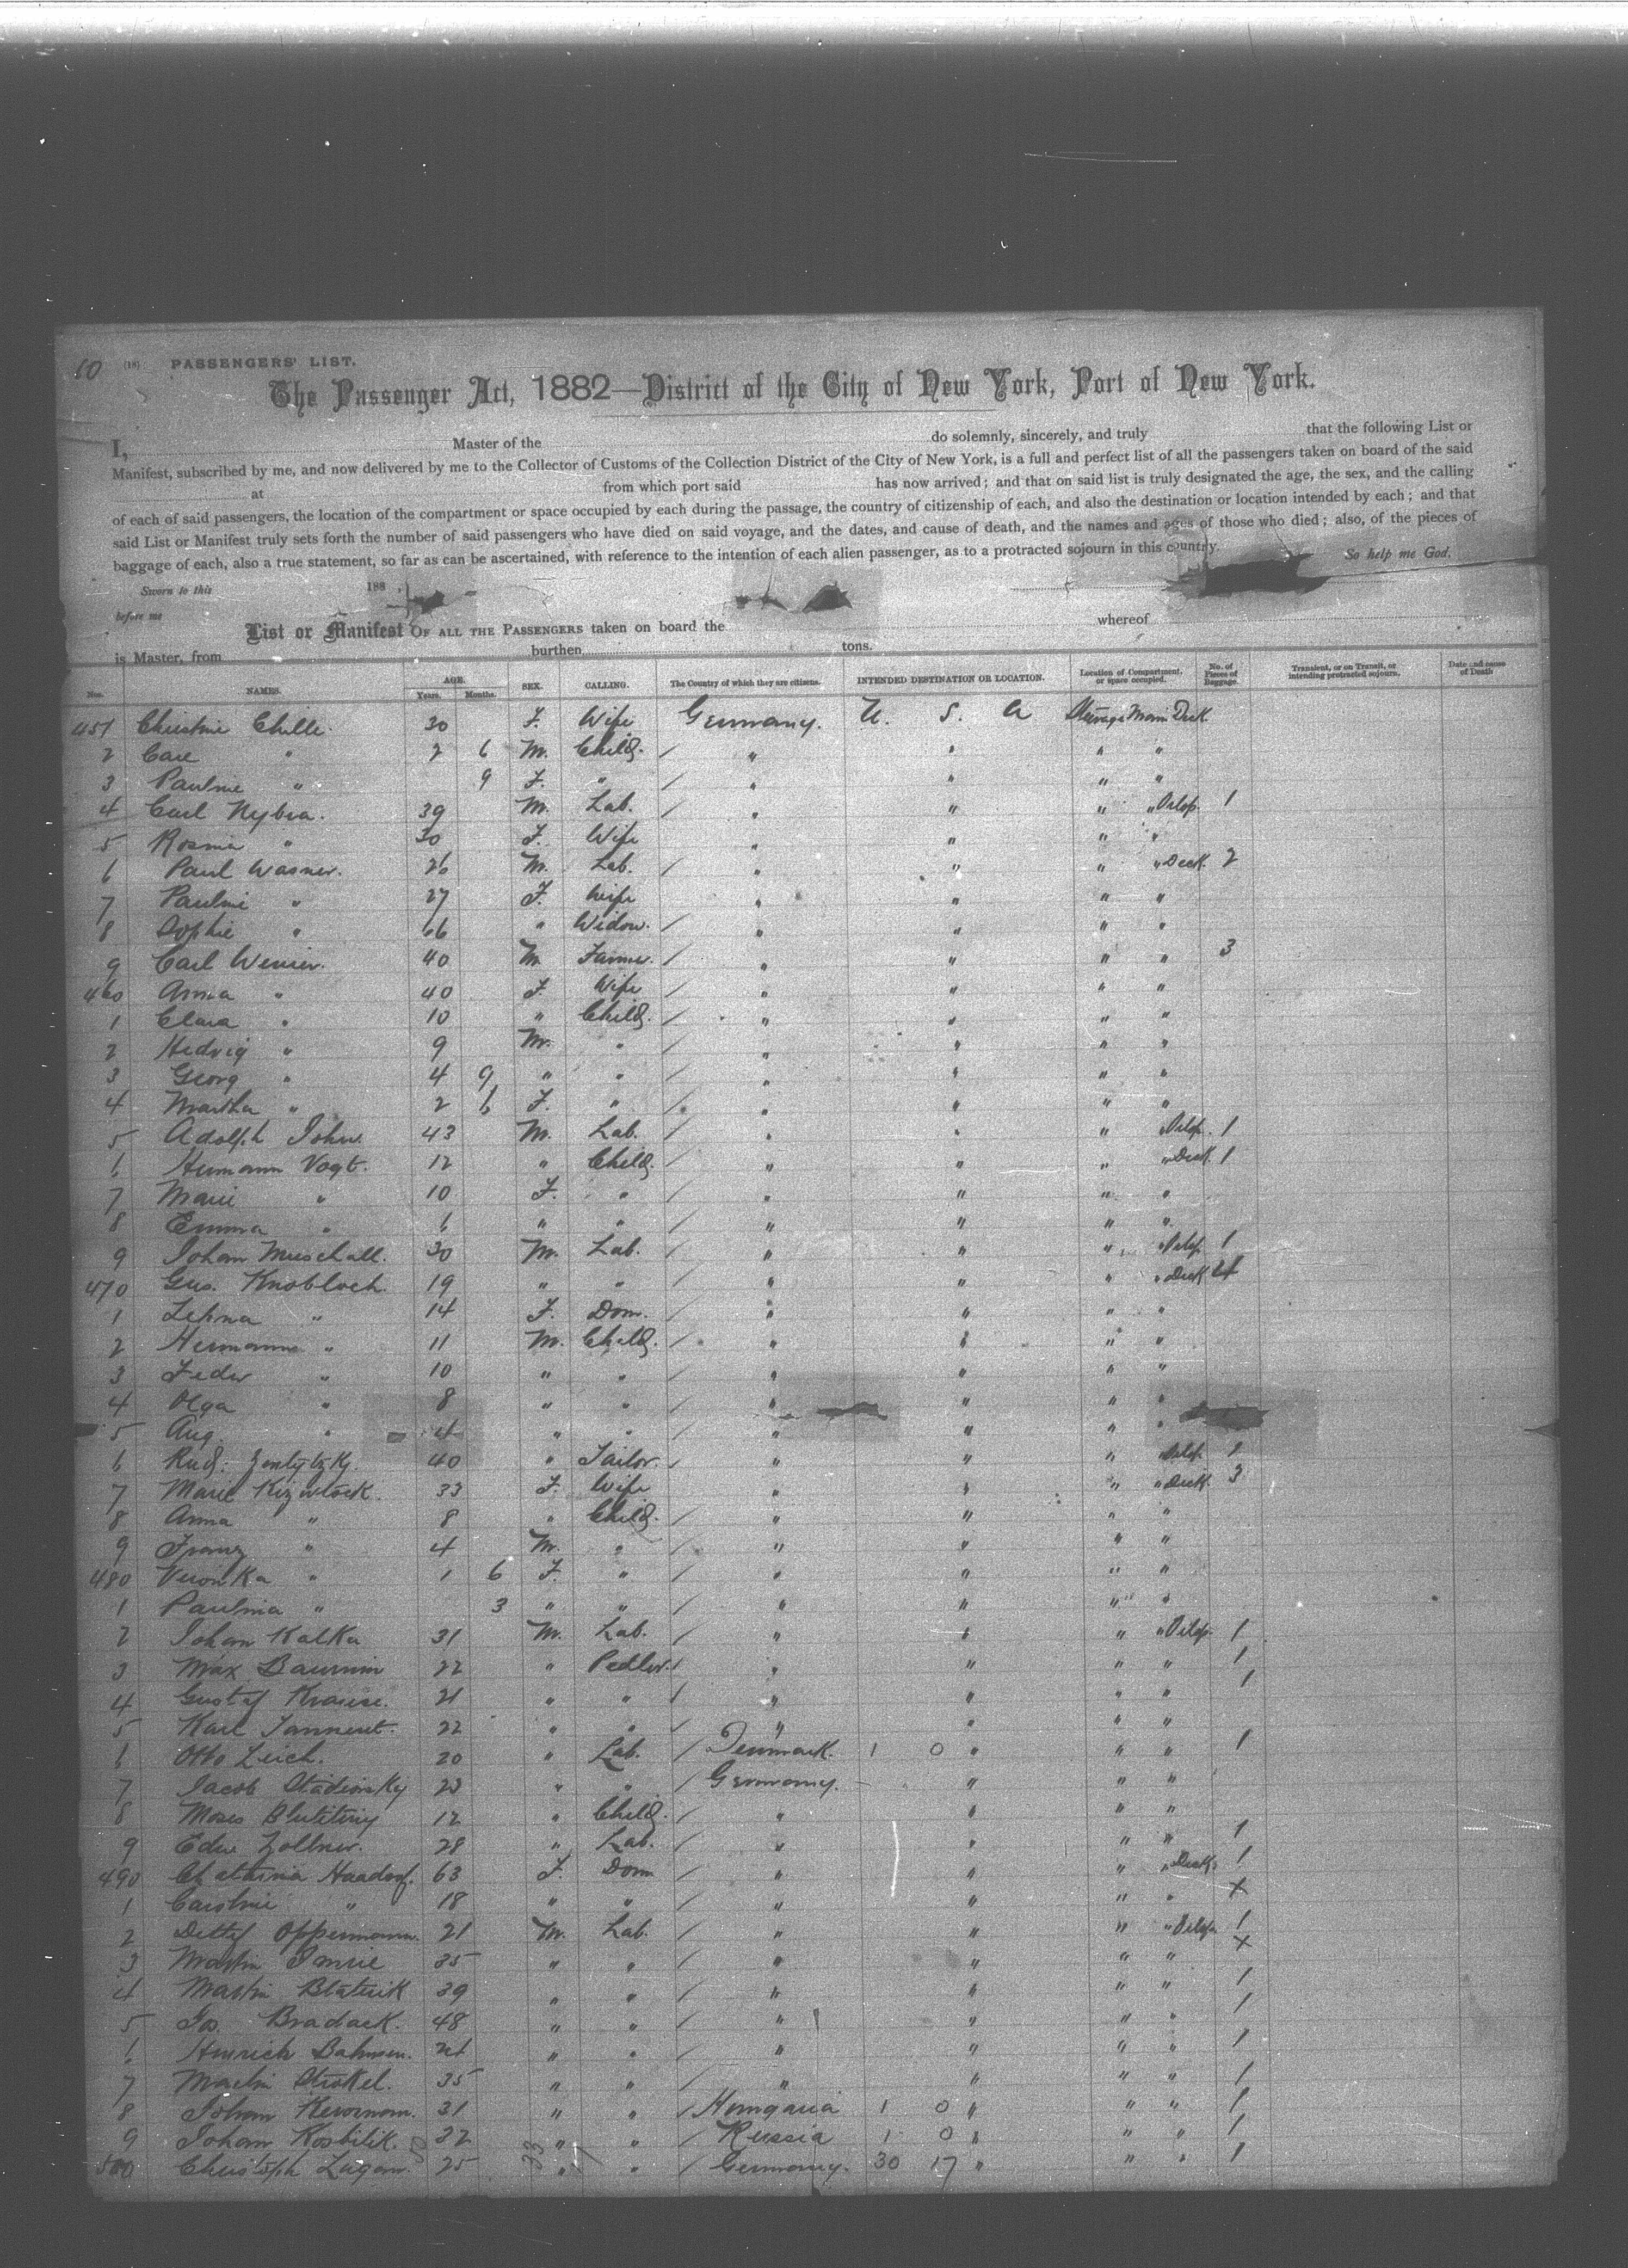 60 (18) PASSENGERS' LIST.
The Passenger Act, 1882—District of the City of New York, Port of New York.
I, Master of the do solemnly, sincerely, and truly that the following List or
Manifest, subscribed by me, and now delivered by me to the Collector of Customs of the Collection District of the City of New York, is a full and perfect list of all the passengers taken on board of the said
at from which port said has now arrived; and that on said list is truly designated the age, the sex, and the calling
of each of said passengers, the location of the compartment or space occupied by each during the passage, the country of citizenship of each, and also the destination or location intended by each; and that
said List or Manifest truly sets forth the number of said passengers who have died on said voyage, and the dates, and cause of death, and the names and ages of those who died; also, of the pieces of
baggage of each, also a true statement, so far as can be ascertained, with reference to the intention of each alien passenger, as to a protracted sojourn in this country. So help me God.
Sworn to this 188
before me
List or Manifest OF ALL THE PASSENGERS taken on board the whereof
is Master, from burthen tons.
Nos. NAMES. AGE. Years. Months. SEX. CALLING. The Country of which they are citizens. INTENDED DESTINATION OR LOCATION. Location of Compartment, or space occupied. No. of Pieces of Baggage. Transient, or on Transit, or intending protracted sojourn. Date and cause of Death
451 Christine Chille 30 F. Wife Germany. U. S. A Steerage Main Deck
2 Carl " 2 6 M. Child. / " " " "
3 Pauline " 9 F. " / " " " "
4 Carl Nybra. 39 M. Lab. / " " " " 1
5 Rosina " 30 F. Wife " " " "
6 Paul Wasner. 26 M. Lab. / " " " " Deck. 2
7 Pauline " 27 F. Wife " " " "
8 Sophie " 66 " Widow. / " " " "
9 Carl 40 M Farmer. / " " " " 3
460 Anna " 40 F. Wife / " " " "
1 Clara " 10 " Child. / " " " "
2 Hedvig " 9 M. " " " " "
3 Georg " 4 9 " " / " " " "
4 Martha " 2 6 F. " / " " " "
5 Adolph John. 43 M. Lab. / " " " " 1
6 Hermann Vogt. 12 " Child. / " " " " Deck. 1
7 Marie " 10 F. " / " " " "
8 Emma " 6 " " / " " " "
9 Johan Muschall. 30 M. Lab. / " " " " 1
470 Gus. Knobloch. 19 " " / " " " " Deck
1 Lehna " 14 F. Dom. / " " " "
2 Hermann " 11 M. Child. / " " " "
3 Feder " 10 " " / " " " "
4 Olga " 8 " " / " " " "
5 Aug. " 4 " " / " " " "
6 Rud: 40 " Tailor. / " " " " 1
7 Marie 33 F. Wife " " " " Deck. 3
8 Anna " 8 " Child. / " " " "
9 Franz " 4 M. " / " " " "
480 Veronika " 1 6 F. " / " " " "
1 Paulina " 3 " " / " " " "
2 Johan Kalka 31 M. Lab. / " " " " 1
3 Max 22 " Pedler. / " " " " 1
4 Gustaf Krause. 21 " " / " " " " 1
5 Karl 22 " " / " " " "
6 Otto Leich. 20 " Lab. / Denmark. 1 0 " " " 1
7 Jacob 23 " " / Germany. " " "
8 Moses 12 " Child. / " " " "
9 Edw Zollner. 28 " Lab. / " " " " 1
490 63 F. Dom / " " " " Deck. 1
1 Caroline " 18 " " / " " " " x
2 Oppermann. 21 M. Lab. / " " " " 1
3 Martin 35 " " / " " " " x
4 Martin 39 " " / " " " " 1
5 Jos. Bradack. 48 " " / " " " " 1
6 Hinrich 24 " " / " " " " 1
7 Martin 35 " " / " " " " 1
8 Johan 31 " " / Hungaria 1 0 " " " 1
9 Johan Kosbilik. 32 " " / Russia 1 0 " " " 1
500 Christoph 25 " " / Germany. 30 17 " " " 1